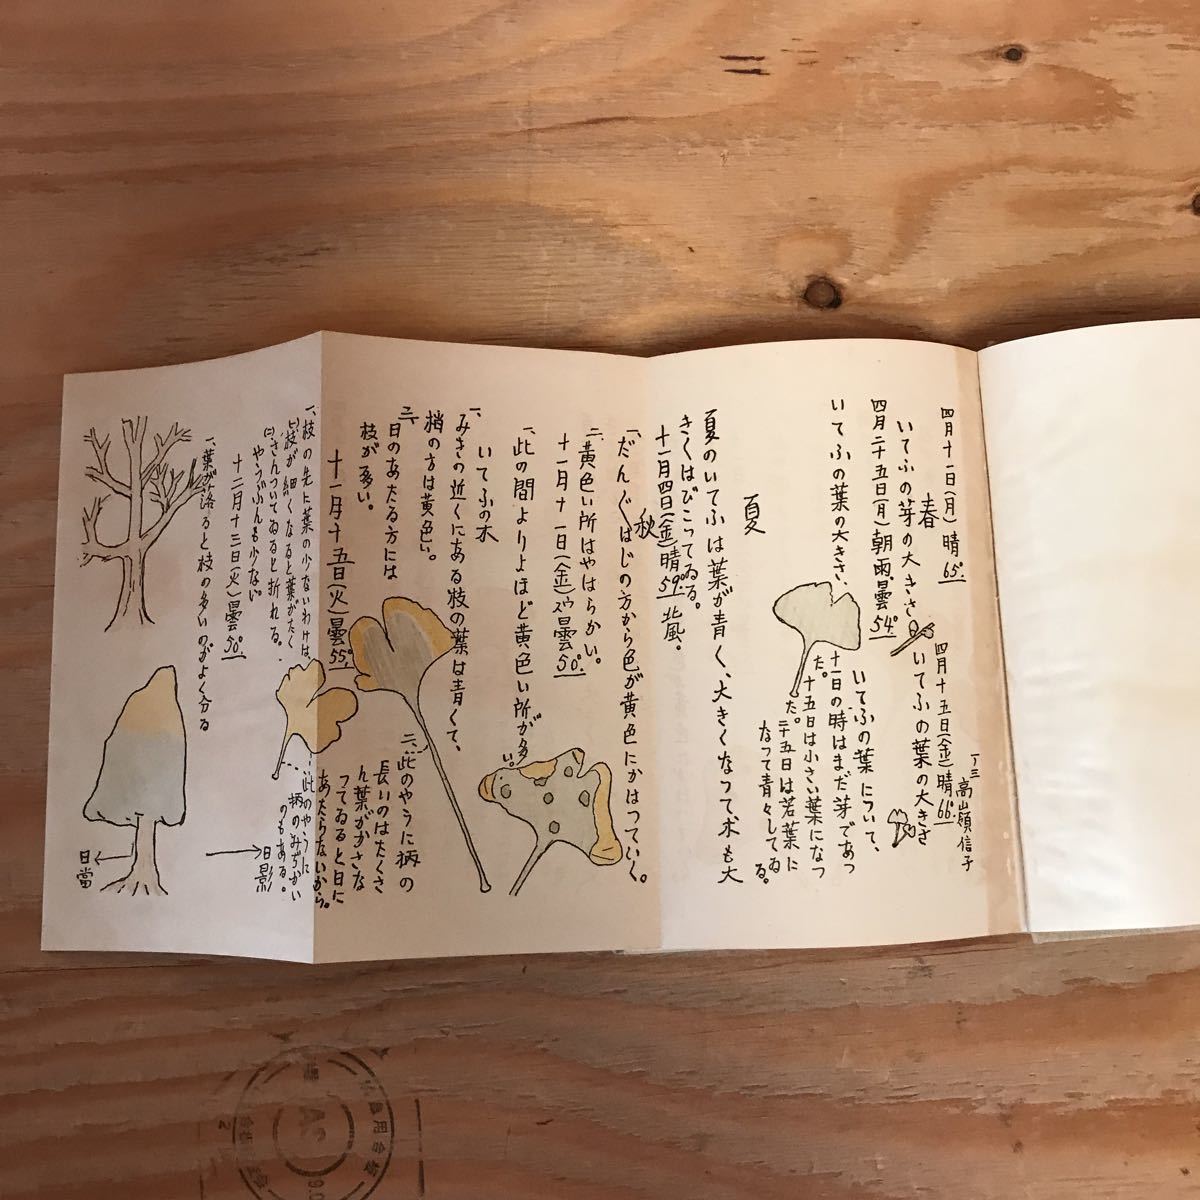 丁三 高嶺信子
春
四月十一日(月)晴65°.
いてふの芽の大きさ
四月十五日(金)晴66°.
いてふの葉の大きさ
四月二十五日(月)朝雨、曇54°.
いてふの葉の大きさ、
いてふの葉について、
十一日の時はまだ芽であつ
た。十五日は小さい葉になつ
た。二十五日は若葉に
なつて青々してゐる。
夏
夏のいてふは葉が青く、大きくなつて、木も大
きくはびこつてゐる。
秋
十一月四日(金)晴59°.北風。
一、だん〲はじの方から色が黄色にかはつていく。
二、黄色い所はやはらかい。
十一月十一日(金)曇50°.
一、此の間よりよほど黄色い所が多い。
いてふの木
一、みきの近くにある枝の葉は青くて、
梢の方は黄色い。
二、日のあたる方には
枝が多い。
十一月十五日(火)曇55°.
一、枝の先に葉の少ないわけは、
枝が細くなると葉がたく
さんついてゐると折れる。
やうぶんも少ない
二、此のやうに柄の
長いのはたくさ
ん葉がかさな
つてゐると日に
あたらないから。
此のやうに
柄のみぢかい
のもある。
十二月十三日(火)曇50°.
一、葉が落ると枝の多いのがよく分る
日影
日當